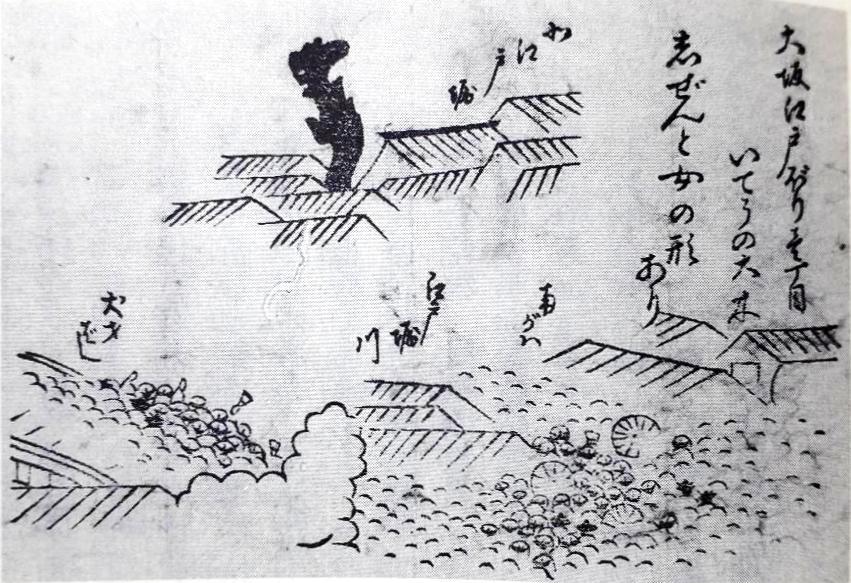 大坂江戸ぼり壱丁目
いてうの大木
志ぜんと女の形
あり
北江戸堀
南がハ
江戸堀
川
犬才
ばし